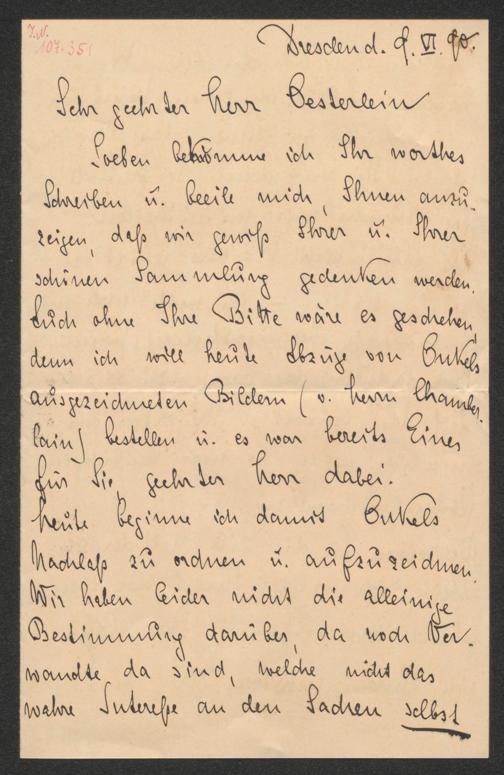 I.N.
107.351
Dresden d. 9. VI. 90.
Sehr geehrter Herr Oesterlein
Soeben bekomme ich Ihr werthes
Schreiben u. beeile mich, Ihnen anzu-
zeigen, daß wir gewiß Ihrer u. Ihrer
schönen Sammlung gedenken werden.
Auch ohne Ihre Bitte wäre es geschehen,
denn ich will heute Abzüge von Onkels
ausgezeichneten Bildern (v. Herrn Chamber-
lain) bestellen u. es war bereits Eines
für Sie, geehrter Herr dabei.
Heute beginne ich damit Onkels
Nachlaß zu ordnen u. aufzuzeichnen.
Wir haben leider nicht die alleinige
Bestimmung darüber, da noch Ver-
wandte da sind, welche nicht das
wahre Intereße an den Sachen selbst